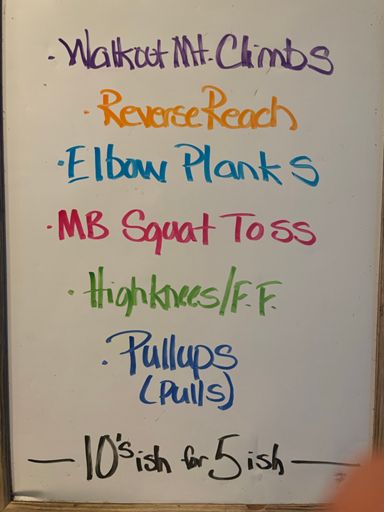 · Walkout Mt. Climbs
· Reverse Reach
· Elbow Planks
· MB Squat Toss
· High knees/F.F.
· Pullups
(Pulls)
— 10's ish for 5 ish —